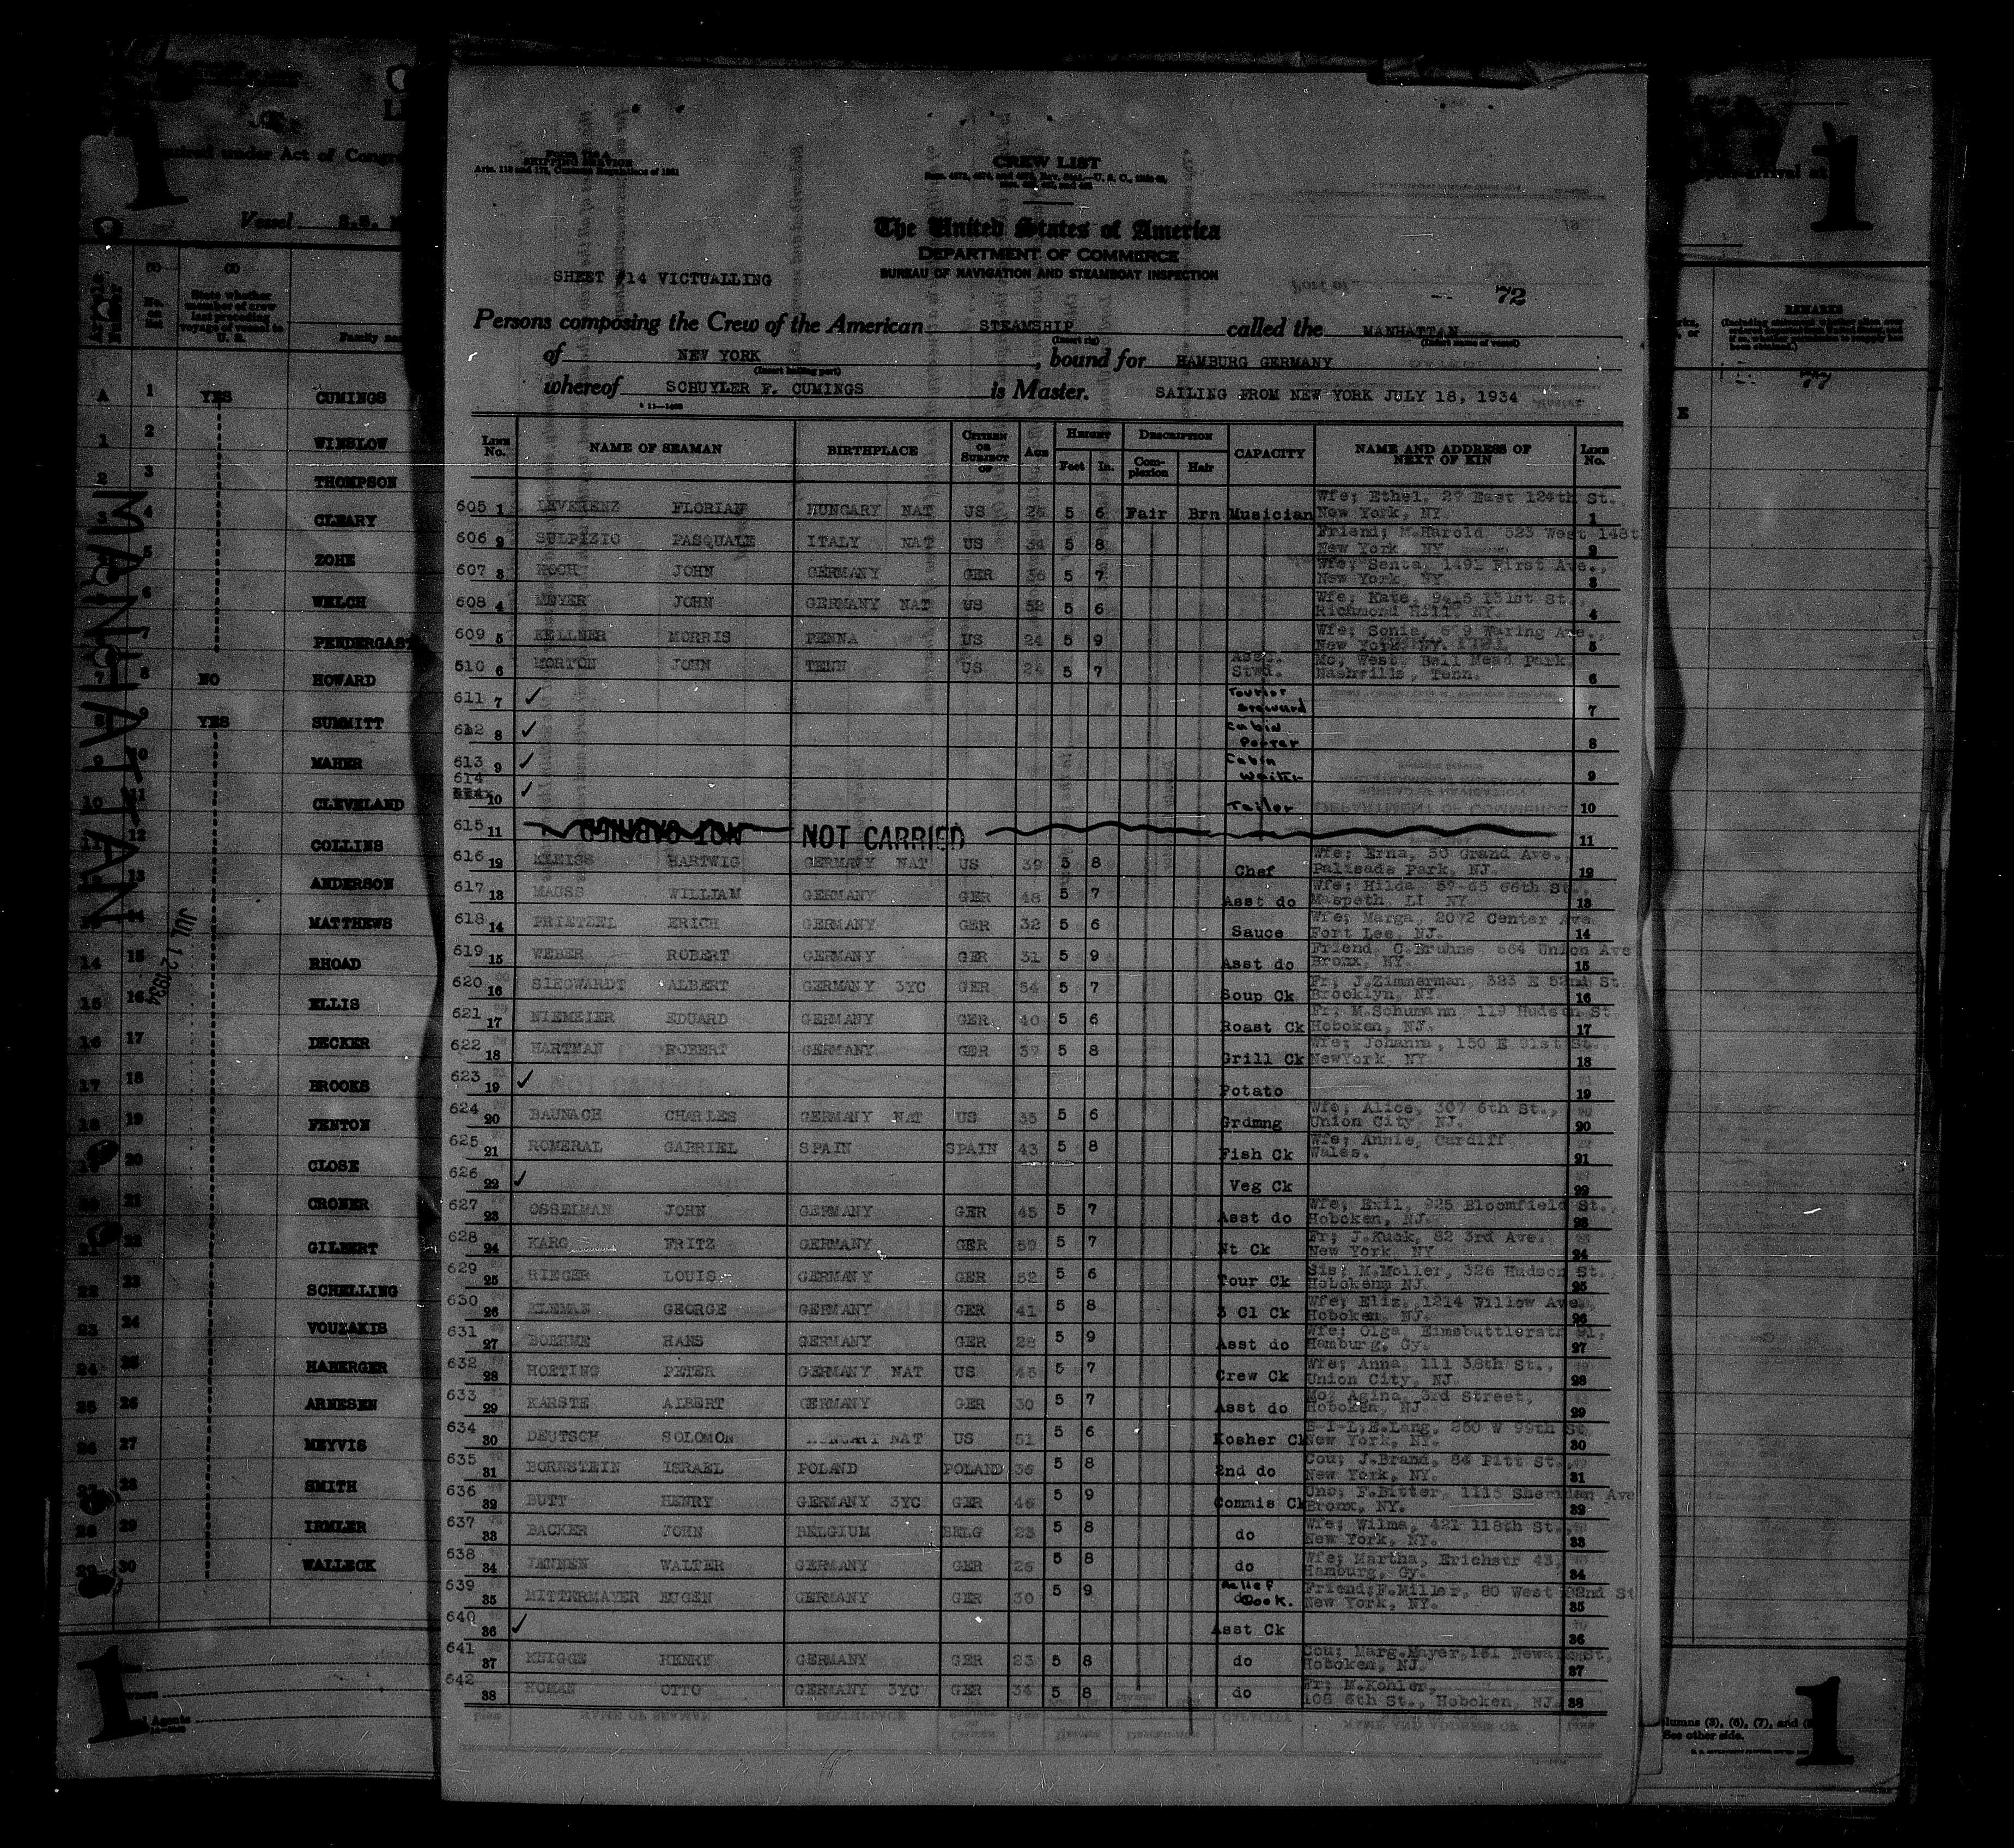 Vessel
CREW LIST
SHIPPING SERVICE
The United States of America
DEPARTMENT OF COMMERCE
BUREAU OF NAVIGATION AND STEAMBOAT INSPECTION
SHEET #14 VICTUALLING
72
Persons composing the Crew of the American STEAMSHIP called the MANHATTAN
of NEW YORK, bound for HAMBURG GERMANY
whereof SCHUYLER F. CUMINGS is Master. SAILING FROM NEW YORK JULY 18, 1934
LINE No. NAME OF SEAMAN BIRTHPLACE CITIZEN OR SUBJECT OF AGE HEIGHT Feet In. DESCRIPTION Complexion Hair CAPACITY NAME AND ADDRESS OF NEXT OF KIN LINE No.
605 1 LEVERENZ FLORIAN HUNGARY NAT US 26 5 6 Fair Brn Musician Wfe; Ethel, 27 East 124th St., New York, NY 1
606 2 SULPIZIO PASQUALE ITALY NAT US 34 5 8 Friend; M.Harold 523 West 148t New York NY 2
607 3 KOCH JOHN GERMANY GER 36 5 7 Wfe; Senta, 1491 First Ave., New York, NY. 3
608 4 MEYER JOHN GERMANY NAT US 52 5 6 Wfe; Kate, 9415 131st St., Richmond Hill NY. 4
609 5 KELLNER MORRIS PENNA US 24 5 9 Wfe; Sonia, 679 Waring Ave., New York, NY. 5
510 6 MORTON JOHN TENN US 24 5 7 Asst. Stwd. Mo; West, Bell Mead Park Nashville, Tenn. 6
611 7 ✓ Tourist Steward 7
612 8 ✓ Cabin Porter 8
613 9 ✓ Cabin Waiter 9
614 10 ✓ Tailor 10
615 11 NOT CARRIED NOT CARRIED 11
616 12 KLEISS HARTWIG GERMANY NAT US 39 5 8 Chef Wfe; Erna, 50 Grand Ave., Palisade Park, NJ. 12
617 13 MAUSS WILLIAM GERMANY GER 48 5 7 Asst do Wfe; Hilda 57-65 66th St., Maspeth, LI NY. 13
618 14 PRIETZEL ERICH GERMANY GER 32 5 6 Sauce Wfe; Marga, 2072 Center Ave Fort Lee, NJ. 14
619 15 WEBER ROBERT GERMANY GER 31 5 9 Asst do Friend C.Bruhns, 664 Union Ave Bronx, NY. 15
620 16 SIEGWARDT ALBERT GERMANY 3YC GER 54 5 7 Soup Ck Fr; J.Zimmerman, 323 E 52nd St. Brooklyn, NY. 16
621 17 NIEMEIER EDUARD GERMANY GER 40 5 6 Roast Ck Fr; M.Schumann 119 Hudson St Hoboken, NJ. 17
622 18 HARTMAN ROBERT GERMANY GER 37 5 8 Grill Ck Wfe; Johanna, 150 E 91st St., NewYork, NY. 18
623 19 ✓ Potato 19
624 20 BAUNACH CHARLES GERMANY NAT US 35 5 6 Grdmng Wfe; Alice, 307 6th St., Union City, NJ. 20
625 21 ROMERAL GABRIEL SPAIN SPAIN 43 5 8 Fish Ck Wfe; Annie, Cardiff Wales. 21
626 22 ✓ Veg Ck 22
627 23 OSSELMAN JOHN GERMANY GER 45 5 7 Asst do Wfe; Exil, 925 Bloomfield St., Hoboken, NJ. 23
628 24 KARG FRITZ GERMANY GER 59 5 7 Nt Ck Fr; J.Kuck, 82 3rd Ave. New York NY 24
629 25 RIEGER LOUIS GERMANY GER 52 5 6 Tour Ck Sis; M.Moller, 326 Hudson St., Hobokenn NJ. 25
630 26 KLEMAN GEORGE GERMANY GER 41 5 8 3 Cl Ck Wfe; Eliz, 1214 Willow Ave., Hoboken, NJ. 26
631 27 BOEHME HANS GERMANY GER 28 5 9 Asst do Wfe; Olga, Eimsbuttlerstr 91, Hamburg, Gy. 27
632 28 HOETING PETER GERMANY NAT US 45 5 7 Crew Ck Wfe; Anna 111 38th St., Union City, NJ 28
633 29 KARSTE ALBERT GERMANY GER 30 5 7 Asst do Mo; Agina, 3rd Street, Hoboken, NJ. 29
634 30 DEUTSCH SOLOMON HUNGARY NAT US 51 5 6 Kosher Ck S-I-L; E.Lang, 250 W 99th St New York, NY. 30
635 31 BORNSTEIN ISRAEL POLAND POLAND 36 5 8 2nd do Cou; J.Brand, 84 Pitt St., New York, NY. 31
636 32 BUTT HENRY GERMANY 3YC GER 46 5 9 Commis Ck Unc; F.Bitter, 1115 Sheridan Ave Bronx, NY. 32
637 33 BACKER JOHN BELGIUM BELG 23 5 8 do Wfe; Wilma, 421 118th St., New York, NY. 33
638 34 JENNEN WALTER GERMANY GER 26 5 8 do Wfe; Martha, Erichstr 43, Hamburg, Gy. 34
639 35 MITTERMAYER EUGEN GERMANY GER 30 5 9 Relief Cook. Friend;F.Miller, 80 West 92nd St New York, NY. 35
640 36 ✓ Asst Ck 36
641 37 KNIGGE HENRY GERMANY GER 23 5 8 do Cou; Marg.Mayer,151 Newark St, Hoboken, NJ. 37
642 38 HOMAN OTTO GERMANY 3YC GER 34 5 8 do Fr; M.Kohler, 108 6th St., Hoboken, NJ 38
MANHATTAN
JUL 12 1934
State whether member of crew last preceding voyage of vessel to U. S.
A 1 YES CUMINGS
1 2 WINSLOW
2 3 THOMPSON
3 4 CLEARY
5 ZOHE
6 WELCH
7 PENDERGAST
7 8 NO HOWARD
8 9 YES SUMMITT
9 10 MAHER
10 11 CLEVELAND
12 COLLINS
13 ANDERSON
14 MATTHEWS
14 15 RHOAD
15 16 ELLIS
16 17 DECKER
17 18 BROOKS
18 19 FENTON
20 CLOSE
20 21 CRONER
22 GILBERT
22 23 SCHELLING
23 24 VOUZAKIS
24 25 HABERGER
25 26 ARNESEN
26 27 MEYVIS
28 SMITH
28 29 IRMLER
29 30 WALLECK
REMARKS
1
1
1
1
See other side.